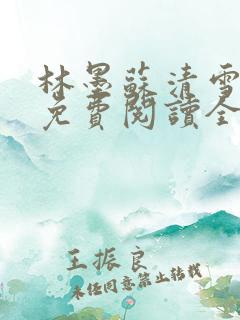 林墨蘇清雪
免費閱讀全
王振良
未經同意禁止轉載